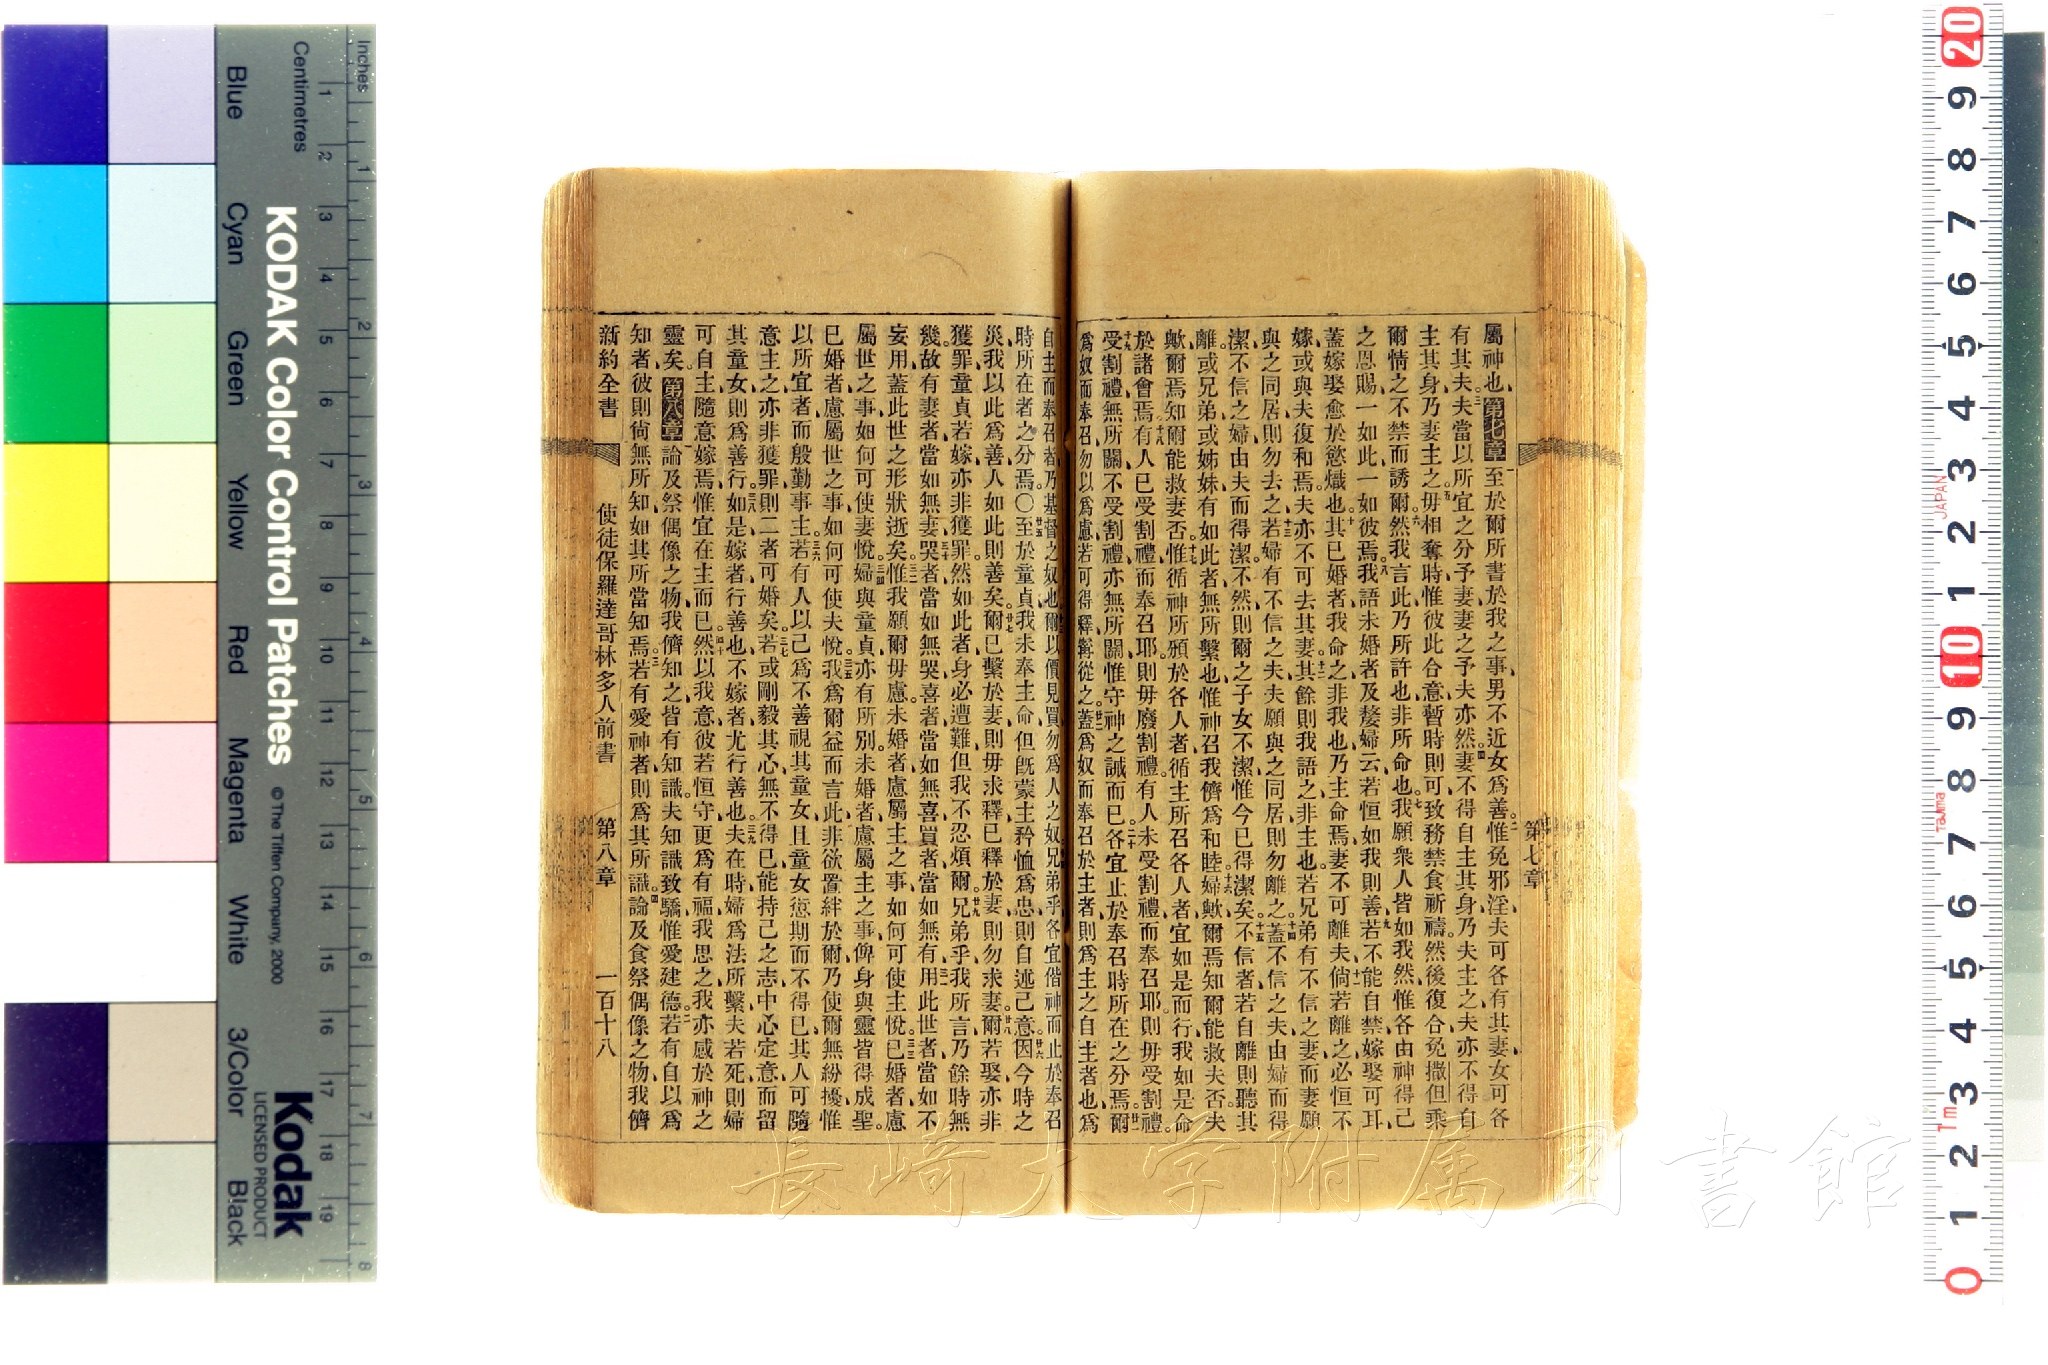 屬神也、第七章一至於爾所書於我之事、男不近女爲善。二惟免邪淫、夫可各有其妻、女可各
有其夫。三夫當以所宜之分予妻、妻之予夫亦然。四妻不得自主其身、乃夫主之、夫亦不得自
主其身、乃妻主之。五毋相奪時、惟彼此合意暫時則可、致務禁食祈禱、然後復合、免撒但乘
爾情之不禁而誘爾。六然我言此、乃所許也、非所命也。七我願衆人皆如我、然惟各由神得己
之恩賜、一如此、一如彼焉。八我語未婚者及嫠婦云、若恒如我則善。九若不能自禁、嫁娶可耳、
蓋嫁娶愈於慾熾也。十其已婚者、我命之、非我也、乃主命焉、妻不可離夫、十一倘若離之、必恒不
嫁、或與夫復和焉、夫亦不可去其妻。十二其餘則我語之、非主也。若兄弟有不信之妻、而妻願
與之同居、則勿去之。十三若婦有不信之夫、夫願與之同居、則勿離之。十四蓋不信之夫由婦而得
潔、不信之婦由夫而得潔、不然、則爾之子女不潔、惟今已得潔矣。十五不信者若自離、則聽其
離、或兄弟或姊妹有如此者、無所繫也、惟神召我儕爲和睦。十六婦歟、爾焉知爾能救夫否、夫
歟、爾焉知爾能救妻否。十七惟循神所頒於各人者、循主所召各人者、宜如是而行、我如是命
於諸會焉。十八有人已受割禮而奉召耶、則毋廢割禮、有人未受割禮而奉召耶、則毋受割禮。
十九受割禮無所關、不受割禮亦無所關、惟守神之誡而已。二十各宜止於奉召時所在之分焉。廿一爾
爲奴而奉召、勿以爲慮、若可得釋、寧從之。廿二蓋爲奴而奉召於主者、則爲主之自主者也、爲
第七章
自主而奉召者、乃基督之奴也、爾以價見買、勿爲人之奴、兄弟乎、各宜偕神而止於奉召
時所在者之分焉。〇廿五至於童貞、我未奉主命、但旣蒙主矜恤爲忠、則自述己意、廿六因今時之
災、我以此爲善、人如此則善矣。廿七爾已繫於妻、則毋求釋、已釋於妻、則勿求妻。廿八爾若娶、亦非
獲罪、童貞若嫁、亦非獲罪、然如此者、身必遭難、但我不忍煩爾。廿九兄弟乎、我所言乃餘時無
幾、故有妻者當如無妻、三十哭者當如無哭、喜者當如無喜、買者當如無有、三一用此世者當如不
妄用、蓋此世之形狀逝矣、三二惟我願爾毋慮、未婚者慮屬主之事、如何可使主悅、三三已婚者慮
屬世之事、如何可使妻悅。三四婦與童貞亦有所別、未婚者慮屬主之事、俾身與靈皆得成聖、
已婚者慮屬世之事、如何可使夫悅。三五我爲爾益而言此、非欲置絆於爾、乃使爾無紛擾、惟
以所宜者而殷勤事主、三六若有人以己爲不善視其童女、且童女愆期而不得已、其人可隨
意主之、亦非獲罪、則二者可婚矣。三七若或剛毅其心、無不得已、能持己之志、中心定意而留
其童女、則爲善行。三八如是嫁者行善也、不嫁者尤行善也。三九夫在時、婦爲法所繫、夫若死、則婦
可自主、隨意嫁焉、惟宜在主而已。四十然以我意、彼若恒守、更爲有福、我思之、我亦感於神之
靈矣。第八章一論及祭偶像之物、我儕知之、皆有知識、夫知識致驕、惟愛建德。二若有自以爲
知者、彼則尙無所知、如其所當知焉。三若有愛神者、則爲其所識。四論及食祭偶像之物、我儕
新約全書　使徒保羅達哥林多人前書　第八章　一百十八
Inches
Centimetres
Blue
Cyan
Green
Yellow
Red
Magenta
White
3/Color
Black
KODAK Color Control Patches © The Tiffen Company, 2000
Kodak
LICENSED PRODUCT
JAPAN
Tajima
長崎大学附属図書館